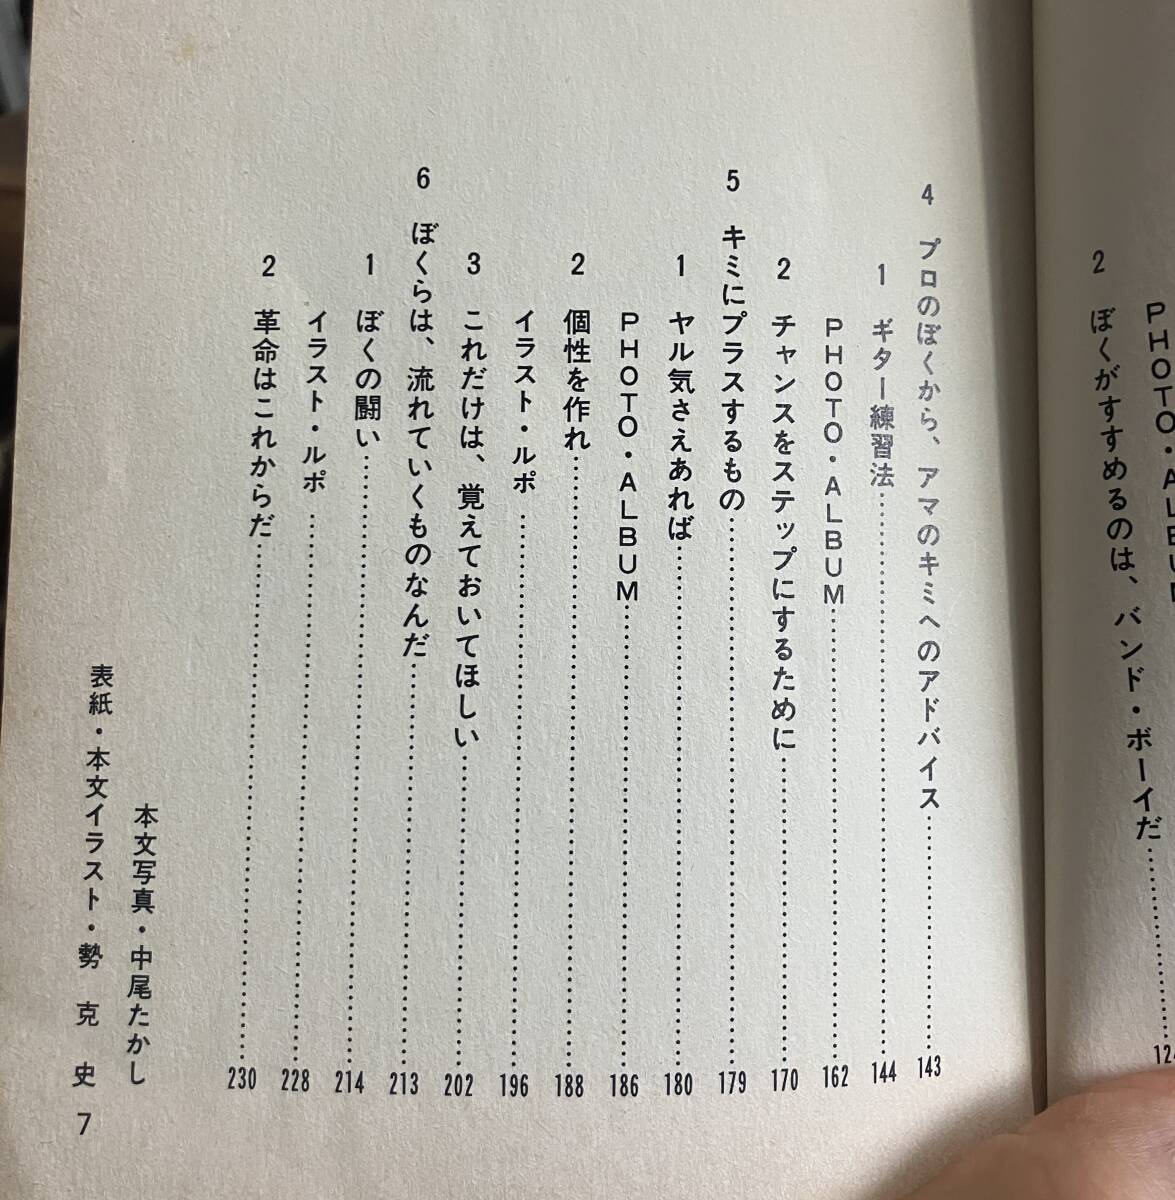 PHOTO・ALBUM
2 ぼくがすすめるのは、バンド・ボーイだ……124
4 プロのぼくから、アマのキミへのアドバイス……143
1 ギター練習法……144
PHOTO・ALBUM……162
2 チャンスをステップにするために……170
5 キミにプラスするもの……179
1 ヤル気さえあれば……180
PHOTO・ALBUM……186
2 個性を作れ……188
イラスト・ルポ……196
3 これだけは、覚えておいてほしい……202
6 ぼくらは、流れていくものなんだ……213
1 ぼくの闘い……214
イラスト・ルポ……228
2 革命はこれからだ……230
本文写真・中尾たかし
表紙・本文イラスト・勢 克 史
7